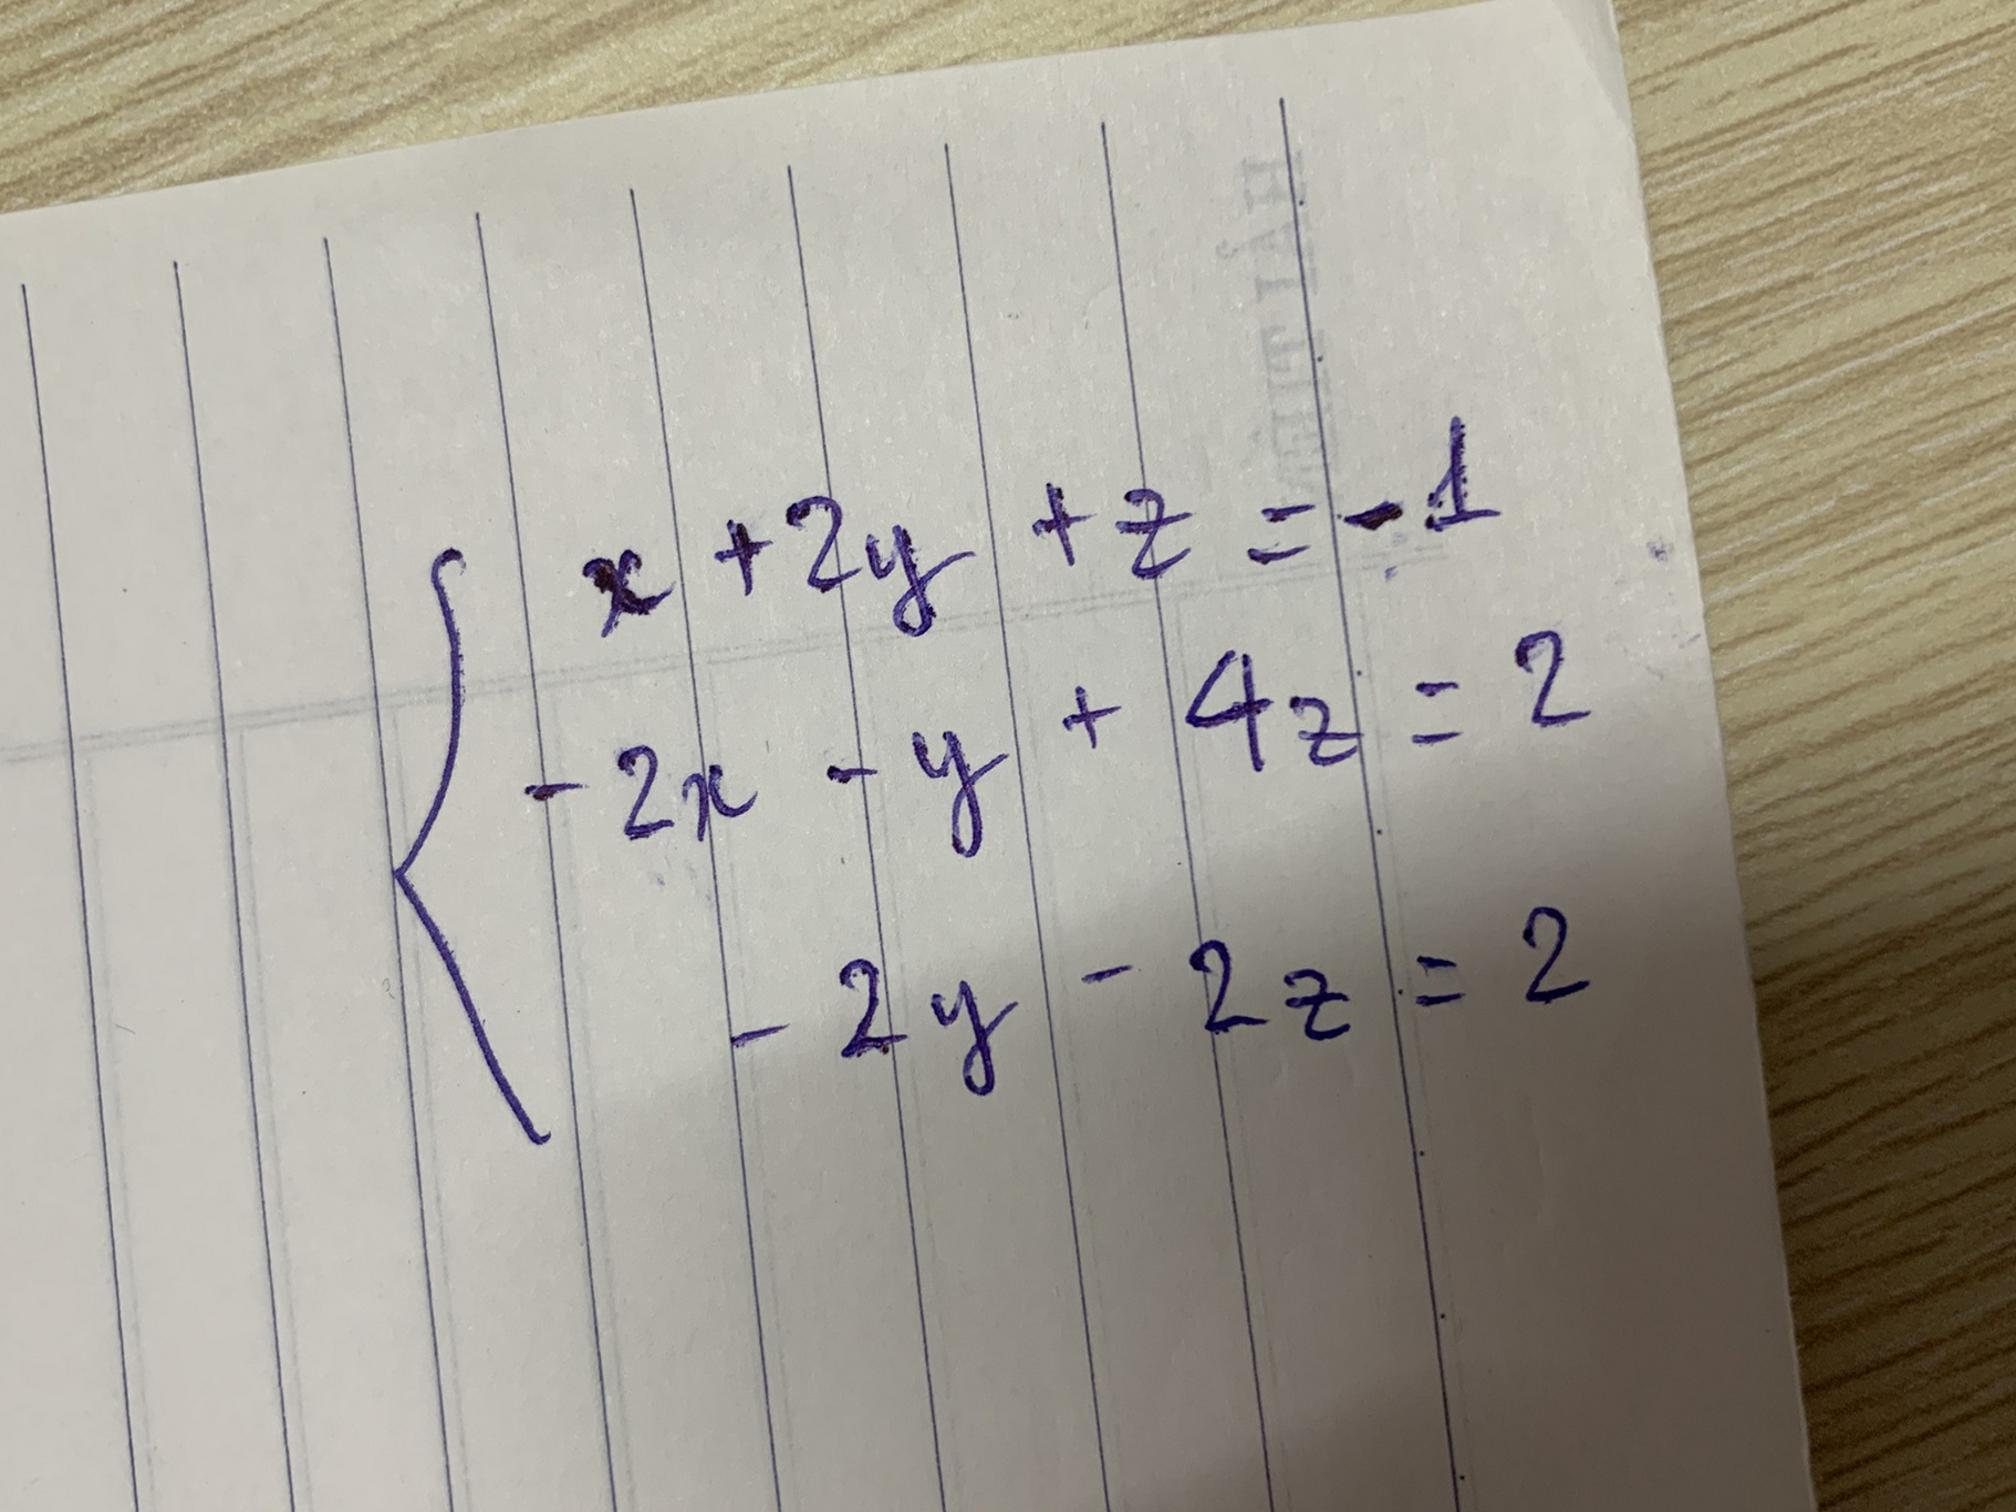 x + 2y + z = - 1
- 2x - y + 4z = 2
- 2y - 2z = 2